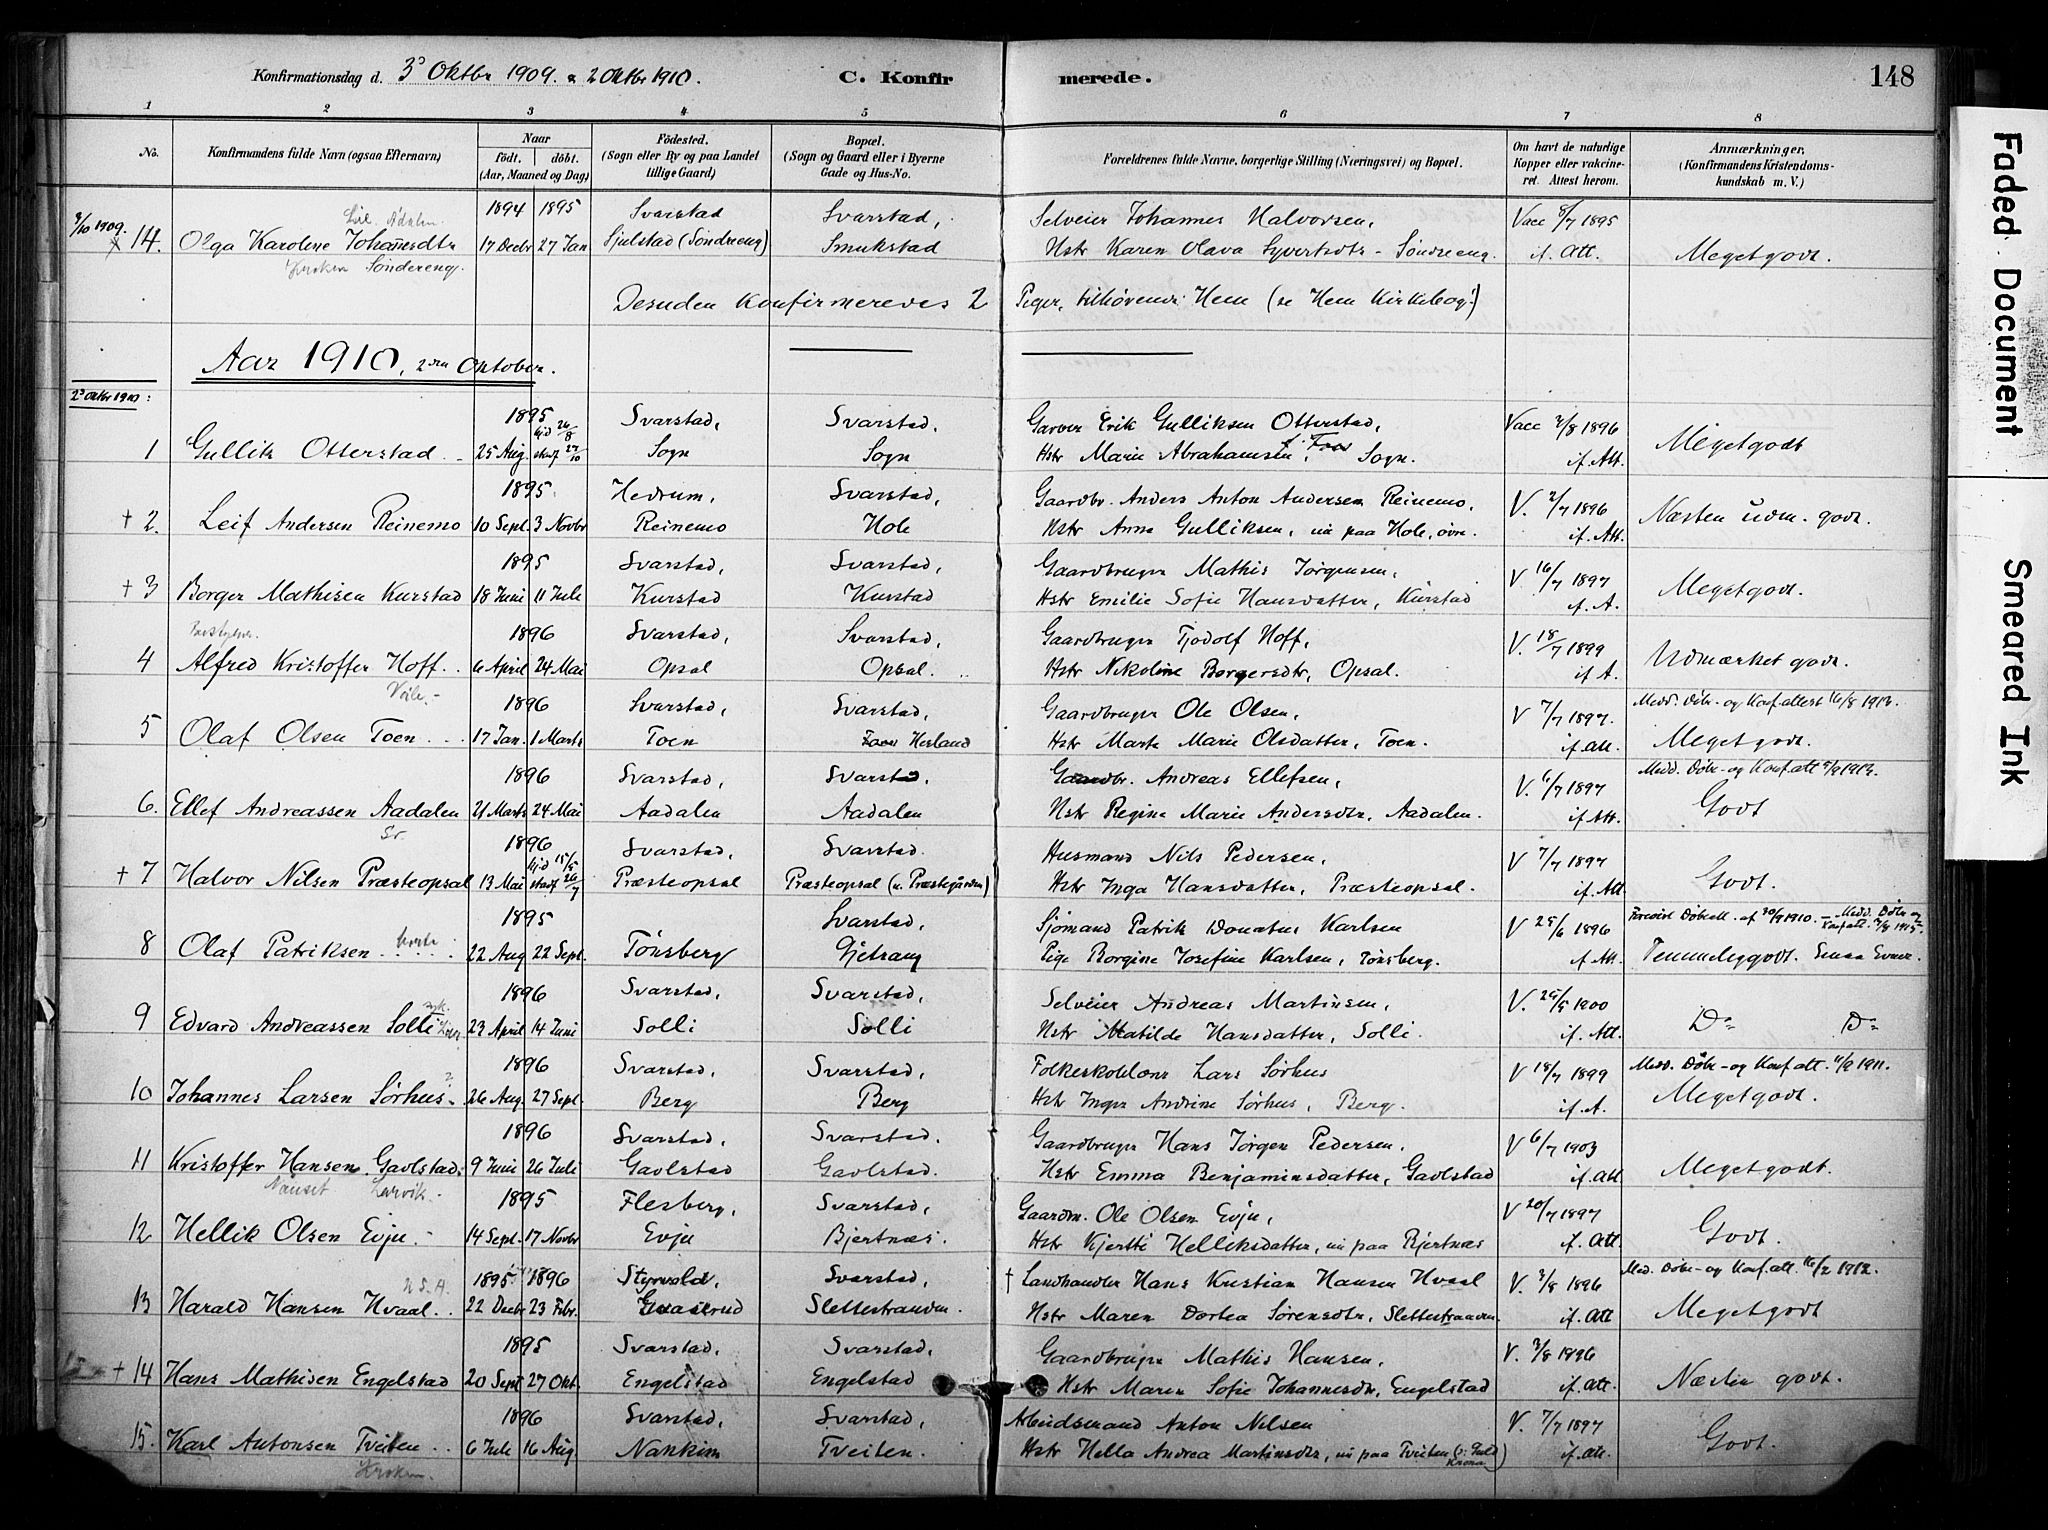 Konfirmationsdag d. 3 Oktbr 1909. & 2 Oktbr 1910. C. Konfirmerede. 148
1 2 3 4 5 6 7 8
No. Konfirmandens fulde Navn (ogsaa Efternavn) Naar födt. döbt. (Aar, Maaned og Dag) Födested. (Sogn eller By og paa Landet tillige Gaard) Bopæl. (Sogn og Gaard eller i Byerne Gade og Hus-No. Forældrenes fulde Navne, borgerlige Stilling (Næringsvei) og Bopæl. Om havt de naturlige Kopper eller vakcineret. Attest herom. Anmærkninger, (Konfirmandens Kristendomskundskab m. V.)
3/10 1909. 1894 1895 Svarstad Svarstad, Selveier Johannes Halvorsen, Vacc 8/7 1895
14. Olga Karoline Johannesdtr 17 Decbr 27 Jan Sjulstad (Søndreeng) Smukstad Hstr Karen Olava Syvertsdtr - Søndreeng. if. Att. Megetgodt.
Kroken Søndereng.
Desuden Konfirmeredes 2 Piger, tilhørende Hem (se Hem Kirkebog!)
Aar 1910, 2den Oktober.
2 Oktbr 1910:
1895 Svarstad, Svarstad, Garver Erik Gulliksen Otterstad, Vacc 3/8 1896
1 Gullik Otterstad 25 Aug. hjd 26/8 stadf 27/10 Sogn Sogn Hstr Marie Abrahamsen, Sogn. if. Att. Megetgodt
1895 Hedrum, Svarstad, Gaardbr. Anders Anton Andersen Reinemo, V. 2/7 1896
+ 2. Leif Andersen Reinemo 10 Sept. 3 Novbr Reinemo Hole Hstr Anne Gulliksen, nu paa Hole, øvre. if. Att. Næsten udm. godt.
1895 Svarstad, Svarstad, Gaardbruger Mathis Jørgensen, V 16/7 1897
+ 3 Borger Mathisen Kurstad 18 Juni 11 Juli Kurstad Kurstad Hstr Emilie Sofie Hansdatter, Kurstad if. A. Megetgodt.
1896 Svarstad, Svarstad, Gaardbruger Tjodolf Hoff, V. 18/7 1899
4 Alfred Kristoffer Hoff 6 April 24 Mai Opsal Opsal. Hstr Nikoline Borgersdtr, Opsal. if A. Udmærket godt.
1896 Svarstad, Svarstad, Gaardbruger Ole Olsen, V 7/7 1897. Medd. Døbe- og Konf.attest 16/8 1913.
5 Olaf Olsen Toen 17 Jan. 1 Marts Toen Herland Hstr Marte Marie Olsdatter, Toen. if. Att. Megetgodt.
1896 Svarstad, Svarstad. Gaardbr. Andreas Ellefsen, V. 6/7 1897 Medd. Døbe- og Konf.att 5/9 1913.
6. Ellef Andreassen Aadalen 21 Marts 24 Mai Aadalen Aadalen Hstr Regine Marie Andersdtr, Aadalen. if. Att. Godt
1896 Svarstad, Svarstad. Husmand Nils Pedersen, V 7/7 1897
+ 7 Halvor Nilsen Præsteopsal 13 Mai hjd 15/5 stadf 26/7 Præsteopsal Præsteopsal (u. Præstegården) Hstr Inga Hansdatter, Præsteopsal. if. Att. Godt.
1895 Svarstad, Sjømand Patrik Donatus Karlsen V 25/6 1896 Forevist Døbeatt. af 30/9 1910. - Medd. Døbe og Konf.att. 1915.
8 Olaf Patriksen 22 Aug 22 Sept. Tønsberg Gjetrang Pige Borgine Josefine Karlsen, Tønsberg. if Att. Temmeleggodt. Smaa Evner.
1896 Svarstad, Svarstad, Selveier Andreas Martinsen, V. 25/9 1900
9 Edvard Andreassen Solli 23 April 14 Juni Solli Solli Hstr Matilde Hansdatter, Solli. if. Att. Do Do
1896 Svarstad, Svarstad, Folkeskolelærer Lars Sørhus V 18/7 1899 Medd. Døbe- og Konf att. 11/9 1911.
10 Johannes Larsen Sørhus 26 Aug. 27 Sept. Berg Berg Hstr Inger Andrine Sørhus, Berg. if. A. Megetgodt.
1896 Svarstad, Svarstad. Gaardbruger Hans Jørgen Pedersen, V 6/7 1903
11 Kristoffer Hansen Gavlstad 9 Juni 26 Juli Gavlstad Gavlstad. Hstr Emma Benjaminsdatter, Gavlstad if. Att Megetgodt.
Larvik. 1895 Flesberg, Svarstad, Gaardm. Ole Olsen Evju, V 20/7 1897
12 Hellik Olsen Evju 14 Sept. 17 Novbr Evju Bjertnæs. Hstr Kjersti Helliksdatter, nu paa Bjertnæs if. Att. Godt.
U.S.A. 1895 1896 Styrvold, Svarstad, + Landhandler Hans Kristian Hansen Hvaal V. 3/8 1896 Med. Døbe- og Konf.att. 16/2 1912.
13 Harald Hansen Hvaal 22 Decbr 23 Febr. Slettestranden. Hstr Maren Dortea Sørensdtr, Slettestraanden. if. Att Megetgodt
1895 Svarstad, Svarstad, Gaardbruger Mathis Hansen, V. 3/8 1896
+ 14 Hans Mathisen Engelstad 20 Sept 27 Okt. Engelstad Engelstad Hstr Maren Sofie Johannesdtr, Engelstad if. Att. Næsten godt.
1896 Svarstad, Svarstad, Arbeidsmand Anton Nilsen V. 7/7 1897
15. Karl Antonsen Tveiten 6 Juli 16 Aug. Nankim Tveiten. Hstr Hella Andrea Martinsdtr, nu paa Tveiten if. Att. Godt.
Kroken.
Faded Document
Smeared Ink